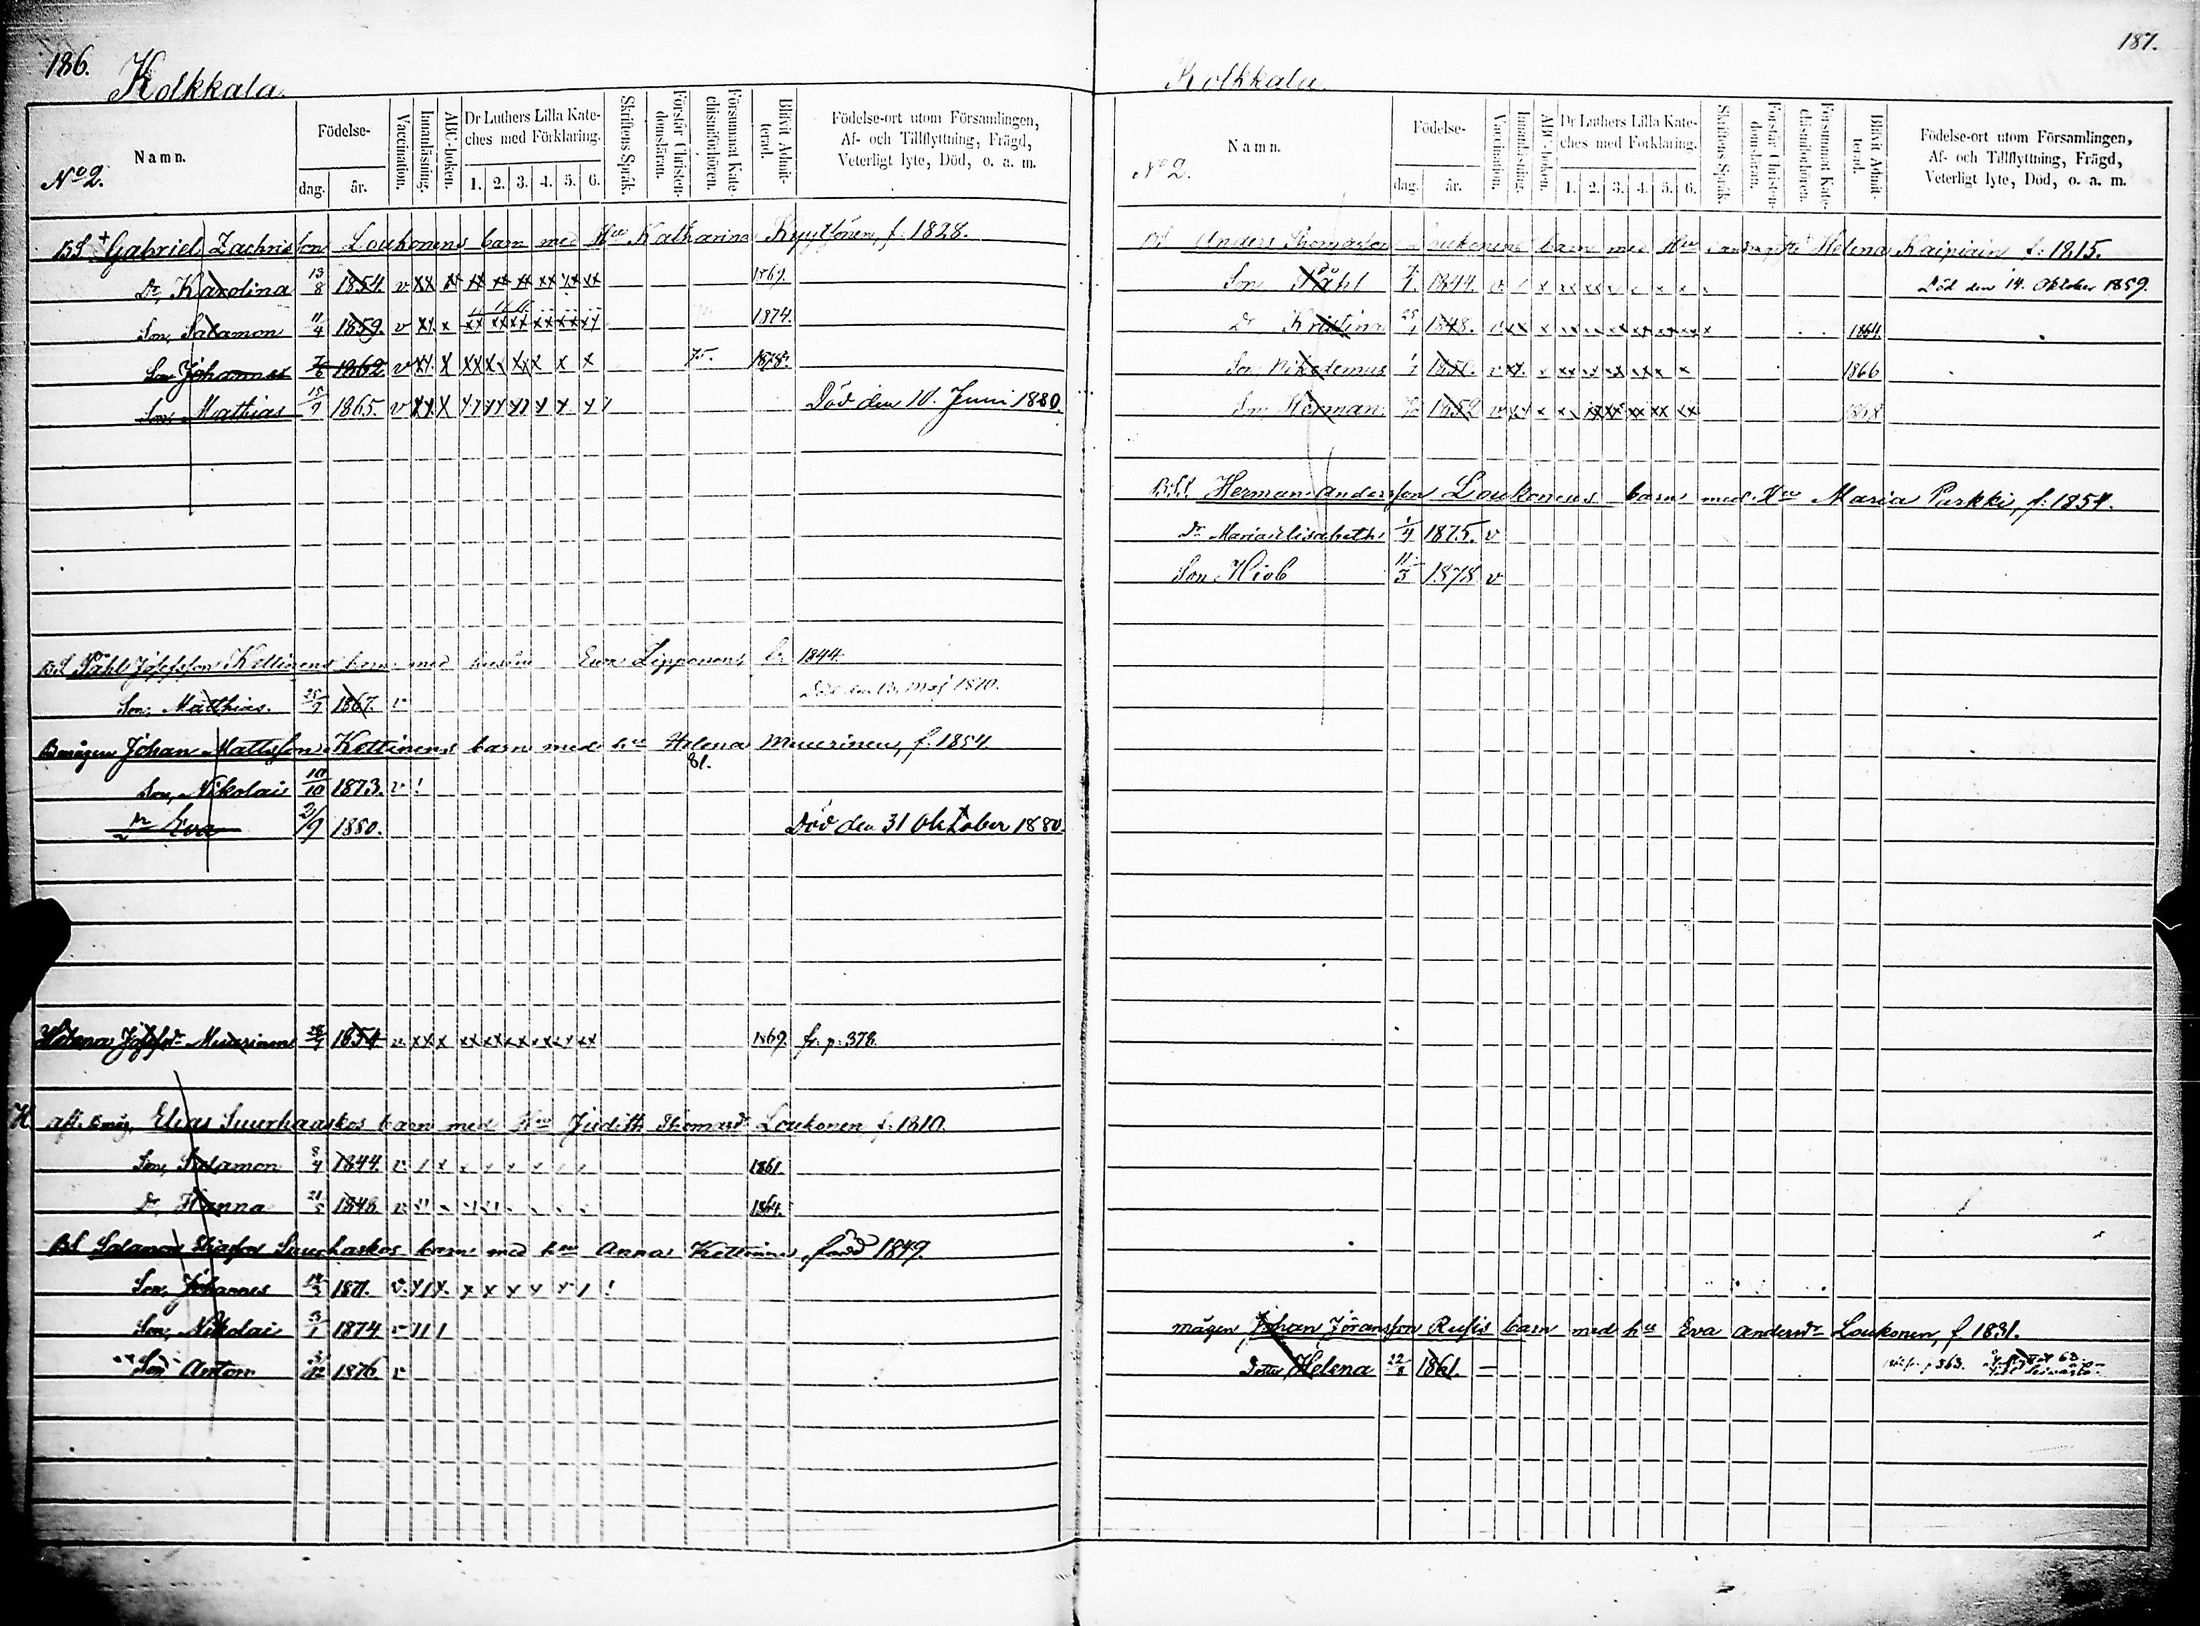 186.
Kolkkala.
No 2.
Namn.
Födelse-
dag. år.
Vaccination.
Innanläsning.
ABC-boken.
Dr Luthers Lilla Kate-
ches med Förklaring.
1. 2. 3. 4. 5. 6.
Skriftens Språk.
Förstår Christen-
domsläran.
Försummat Kate-
chismiförhören.
Blifvit Admit-
terad.
Födelse-ort utom Församlingen,
Af- och Tillflyttning, Frägd,
Veterligt lyte, Död, o. a. m.
BS + Gabriel Zachrisson Loukonens barn med Hu Katharina f. 1828.
Dr, Karolina 13/8 1854. v xx xx xx xx xx xx xx xx 1869.
Son, Salamon 11/4 1859. v xx x xx xx xx xx xx xx 1874.
Son Johannes 1862. v xx x xx xx xx x x x 75. 1878.
Son, Mathias 15/9 1865. v Död den 10. Juni 1880.
BS Påhl Josefsson Kettinens barn med hustru Eva Lipponen f. 1844.
Son, Matthias. 25/9 1867. v Död den 13. Maj 1870.
Bmågen Johan Mattsson Kettinens barn med hu Helena Muurinen, f. 1854.
81.
Son, Nikolai 10/10 1873. v !
Dr Eva 2/9 1880. Död den 31 Oktober 1880.
Helena Josefsdr Muurinen 1854. v xx x xx xx xx xx xx xx 1869. fr. p. 378.
H. afl. Bmåg. Elias Suurhaaskos barn med Hu Judith Thomasdr Loukonen, f. 1810.
Son, Salamon 8/4 1844. v 1861.
Dr, Hanna 21/5 1848. v 1864.
BS Salamon Eliasson Suurhaskos barn med hu Anna Kettinen, född 1849.
Son, Johannes 14/3 1871. v
Son, Nikolai 3/1 1874 v
Son Anton 1876 v
187.
Kolkkala.
No 2.
Namn.
Födelse-
dag. år.
Vaccination.
Innanläsning.
ABC-boken.
Dr Luthers Lilla Kate-
ches med Förklaring.
1. 2. 3. 4. 5. 6.
Skriftens Språk.
Förstår Christen-
domsläran.
Försummat Kate-
chismiförhören.
Blifvit Admit-
terad.
Födelse-ort utom Församlingen,
Af- och Tillflyttning, Frägd,
Veterligt lyte, Död, o. a. m.
Anders Thomasson Loukonens barn med Hu Helena Kaipiain f. 1815.
Son Påhl 1844. Död den 14. Oktober 1859.
Dr Kristina 25/1 1848. 1864.
Son Nikodemus 1850. 1866
Son Herman 1852 1868
BSS Herman Andersson Loukonens barn med Hu Maria Parkki, f. 1854.
Dr Maria Elisabeth 1/4 1875. v
Son Hiob 11/3 1878 v
mågen Johan Jöransson Rusis barn med hu Eva Andersdr Loukonen, f 1831.
Dotter Helena 22/8 1861. —